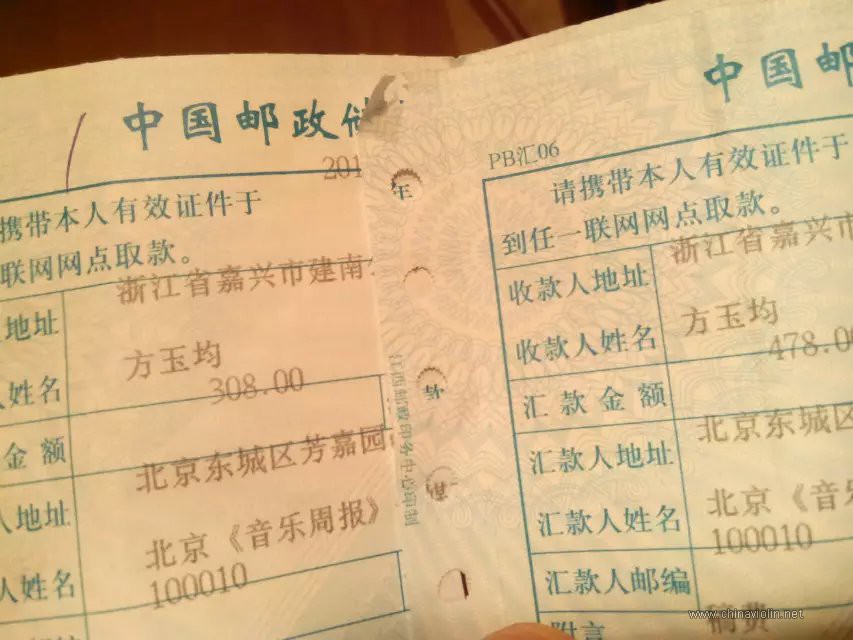 中国邮政
201
携带本人有效证件于
联网网点取款。
地址
浙江省嘉兴市建南
姓名
方玉均
308.00
金 额
北京东城区芳嘉园
地址
北京《音乐周报》
人姓名
100010
江西邮政印务中心印制
中国邮
PB汇06
请携带本人有效证件于
到任一联网网点取款。
收款人地址
浙江省嘉兴市
收款人姓名
方玉均
478.0
汇 款 金 额
北京东城区
汇款人地址
汇款人姓名
北京《音乐
100010
汇款人邮编
附言
稿费
www.chinaviolin.net